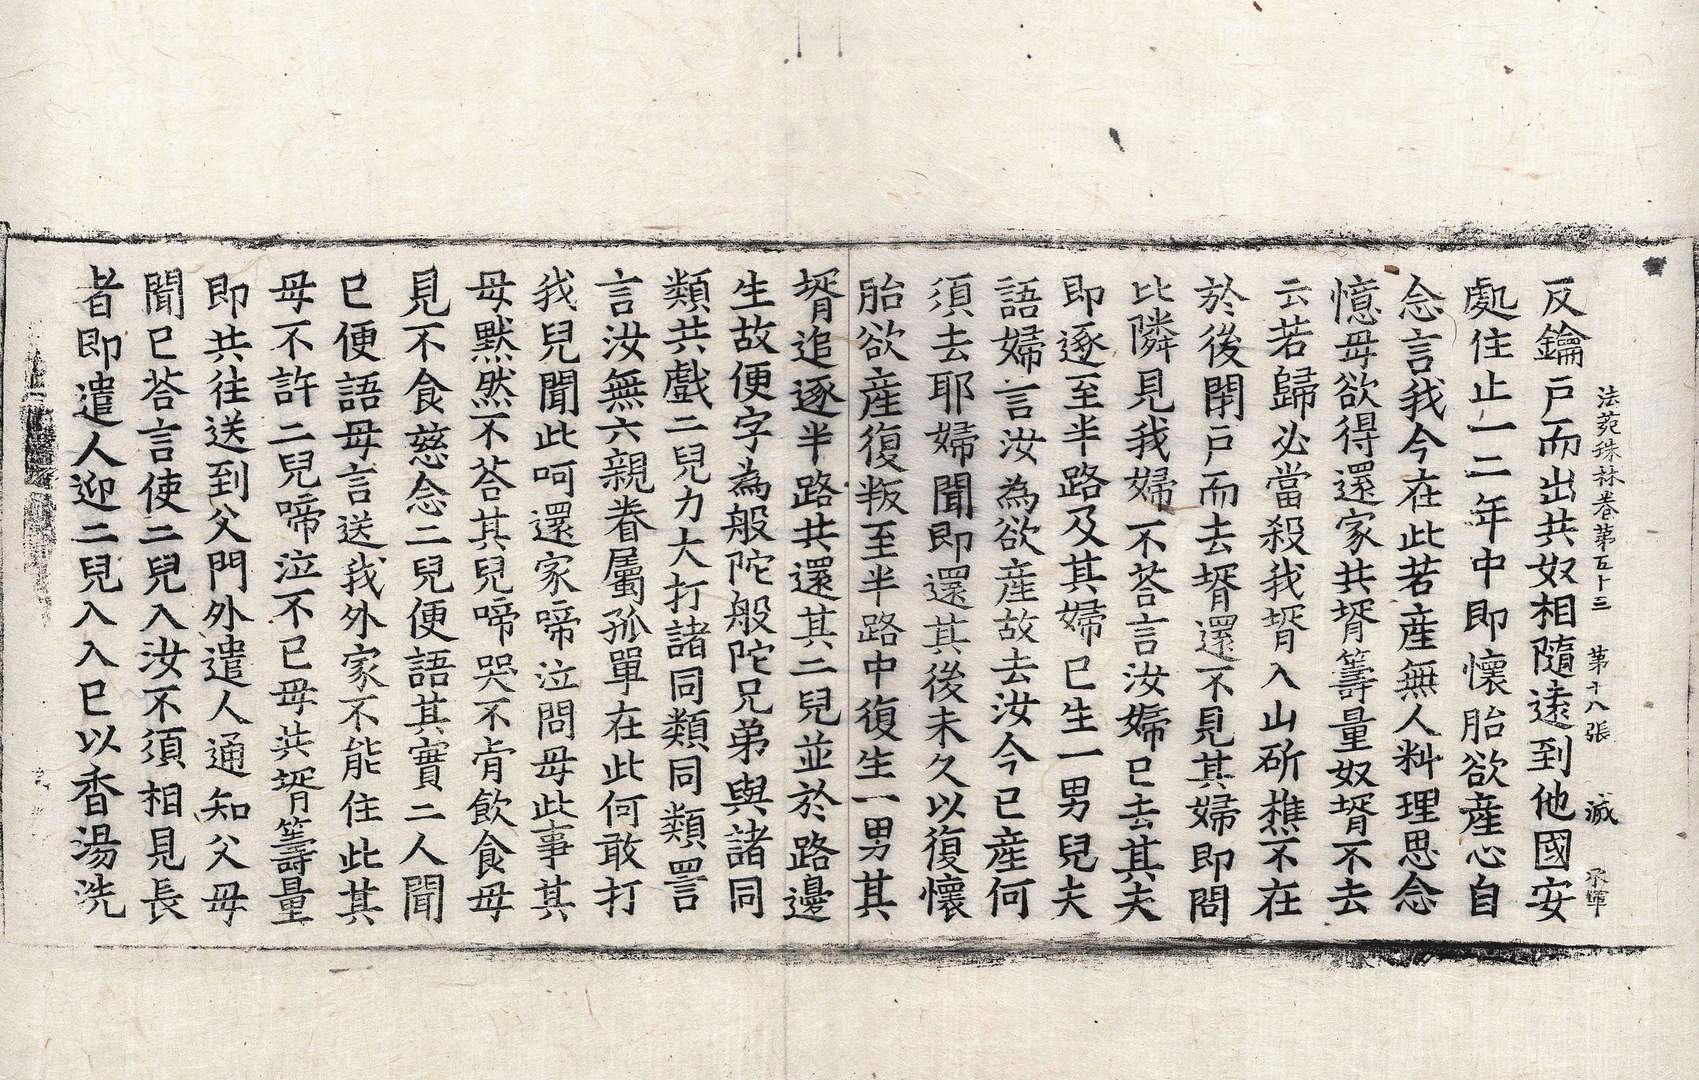 法苑珠林卷第五十三 第十八張 滅 承暉
反鑰戶而出共奴相隨遠到他國安
處住止一二年中即懷胎欲產心自
念言我今在此若產無人料理思念
憶母欲得還家共壻籌量奴壻不去
云若歸必當殺我壻入山斫樵不在
於後閉戶而去壻還不見其婦即問
比隣見我婦不荅言汝婦已去其夫
即逐至半路及其婦已生一男兒夫
語婦言汝為欲產故去汝今已產何
須去耶婦聞即還其後未久以復懷
胎欲產復叛至半路中復生一男其
壻追逐半路共還其二兒並於路邊
生故便字為般陀般陀兄弟與諸同
類共戲二兒力大打諸同類同類罵
言汝無六親眷屬孤單在此何敢打
我兒聞此呵還家啼泣問母此事其
母默然不荅其兒啼哭不肯飲食母
見不食慈念二兒便語其實二人聞
已便語母言送我外家不能住此其
母不許二兒啼泣不已母共壻籌量
即共往送到父門外遣人通知父母
聞已荅言使二兒入汝不須相見長
者即遣人迎二兒入入已以香湯洗